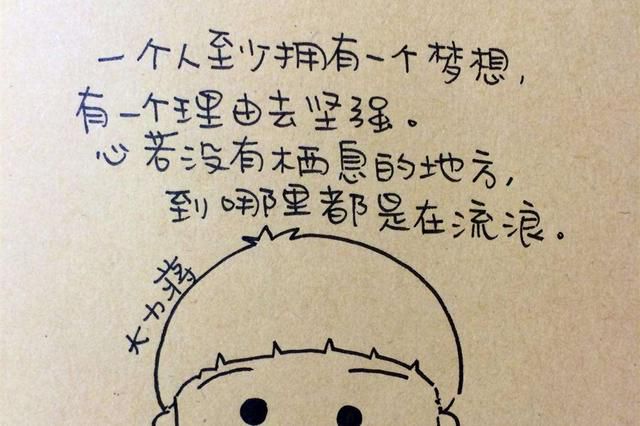 一个人至少拥有一个梦想，
有一个理由去坚强。
心若没有栖息的地方，
到哪里都是在流浪。
大力蒋